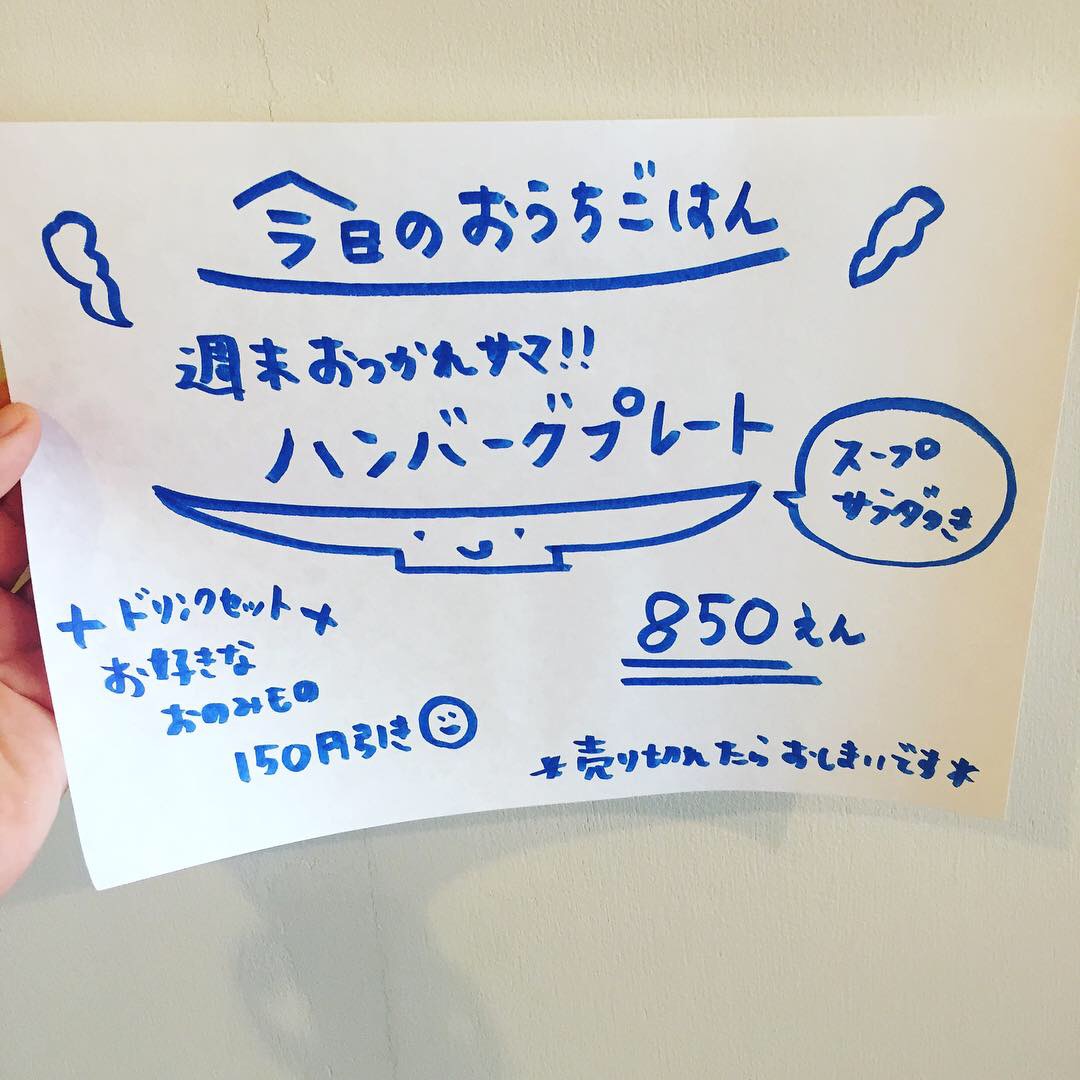 今日のおうちごはん
週末おつかれサマ!!
ハンバーグプレート
スープ
サラダつき
+ドリンクセット+
お好きな
おのみもの
150円引き
850えん
*売り切れたらおしまいです*